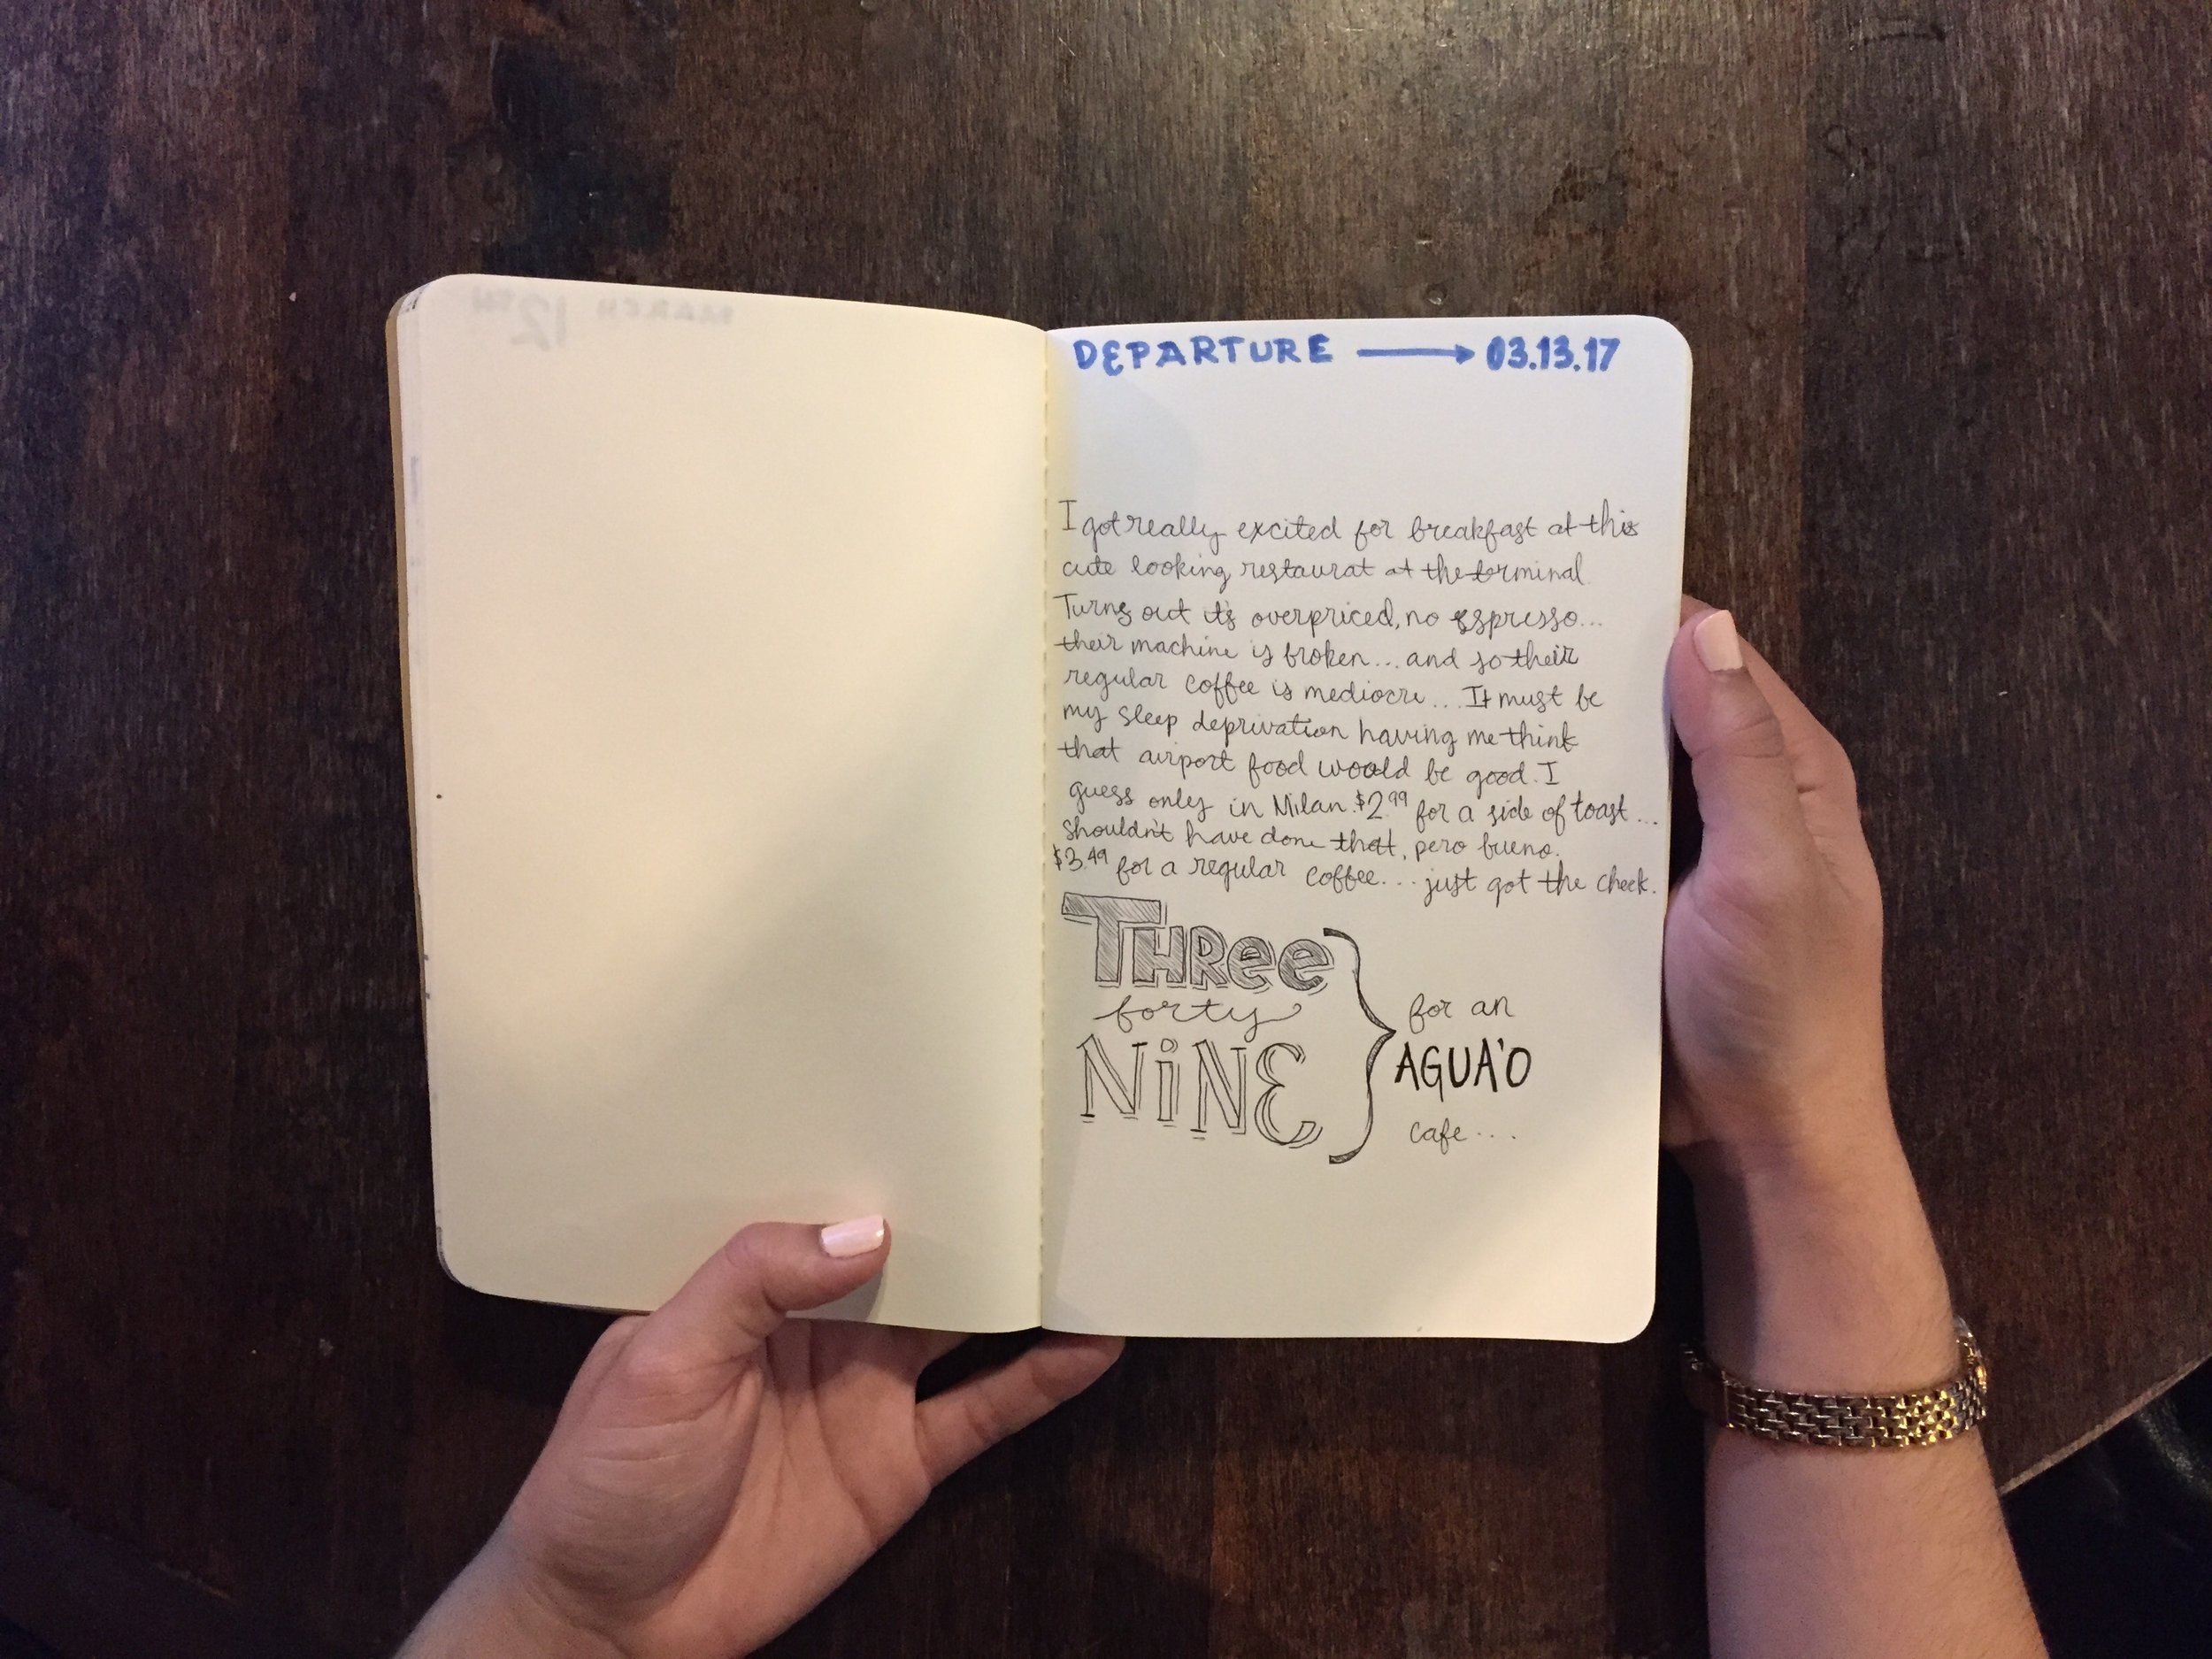 MARCH 12TH
DEPARTURE → 03.13.17
I got really excited for breakfast at this
cute looking restaurat at the terminal.
Turns out it's overpriced, no espresso...
their machine is broken... and so their
regular coffee is mediocre... It must be
my sleep deprivation having me think
that airport food would be good. I
guess only in Milan. $2.99 for a side of toast...
shouldn't have done that, pero bueno.
$3.49 for a regular coffee... just got the check.
THRee
forty
NiNE
for an
AGUA'O
cafe....